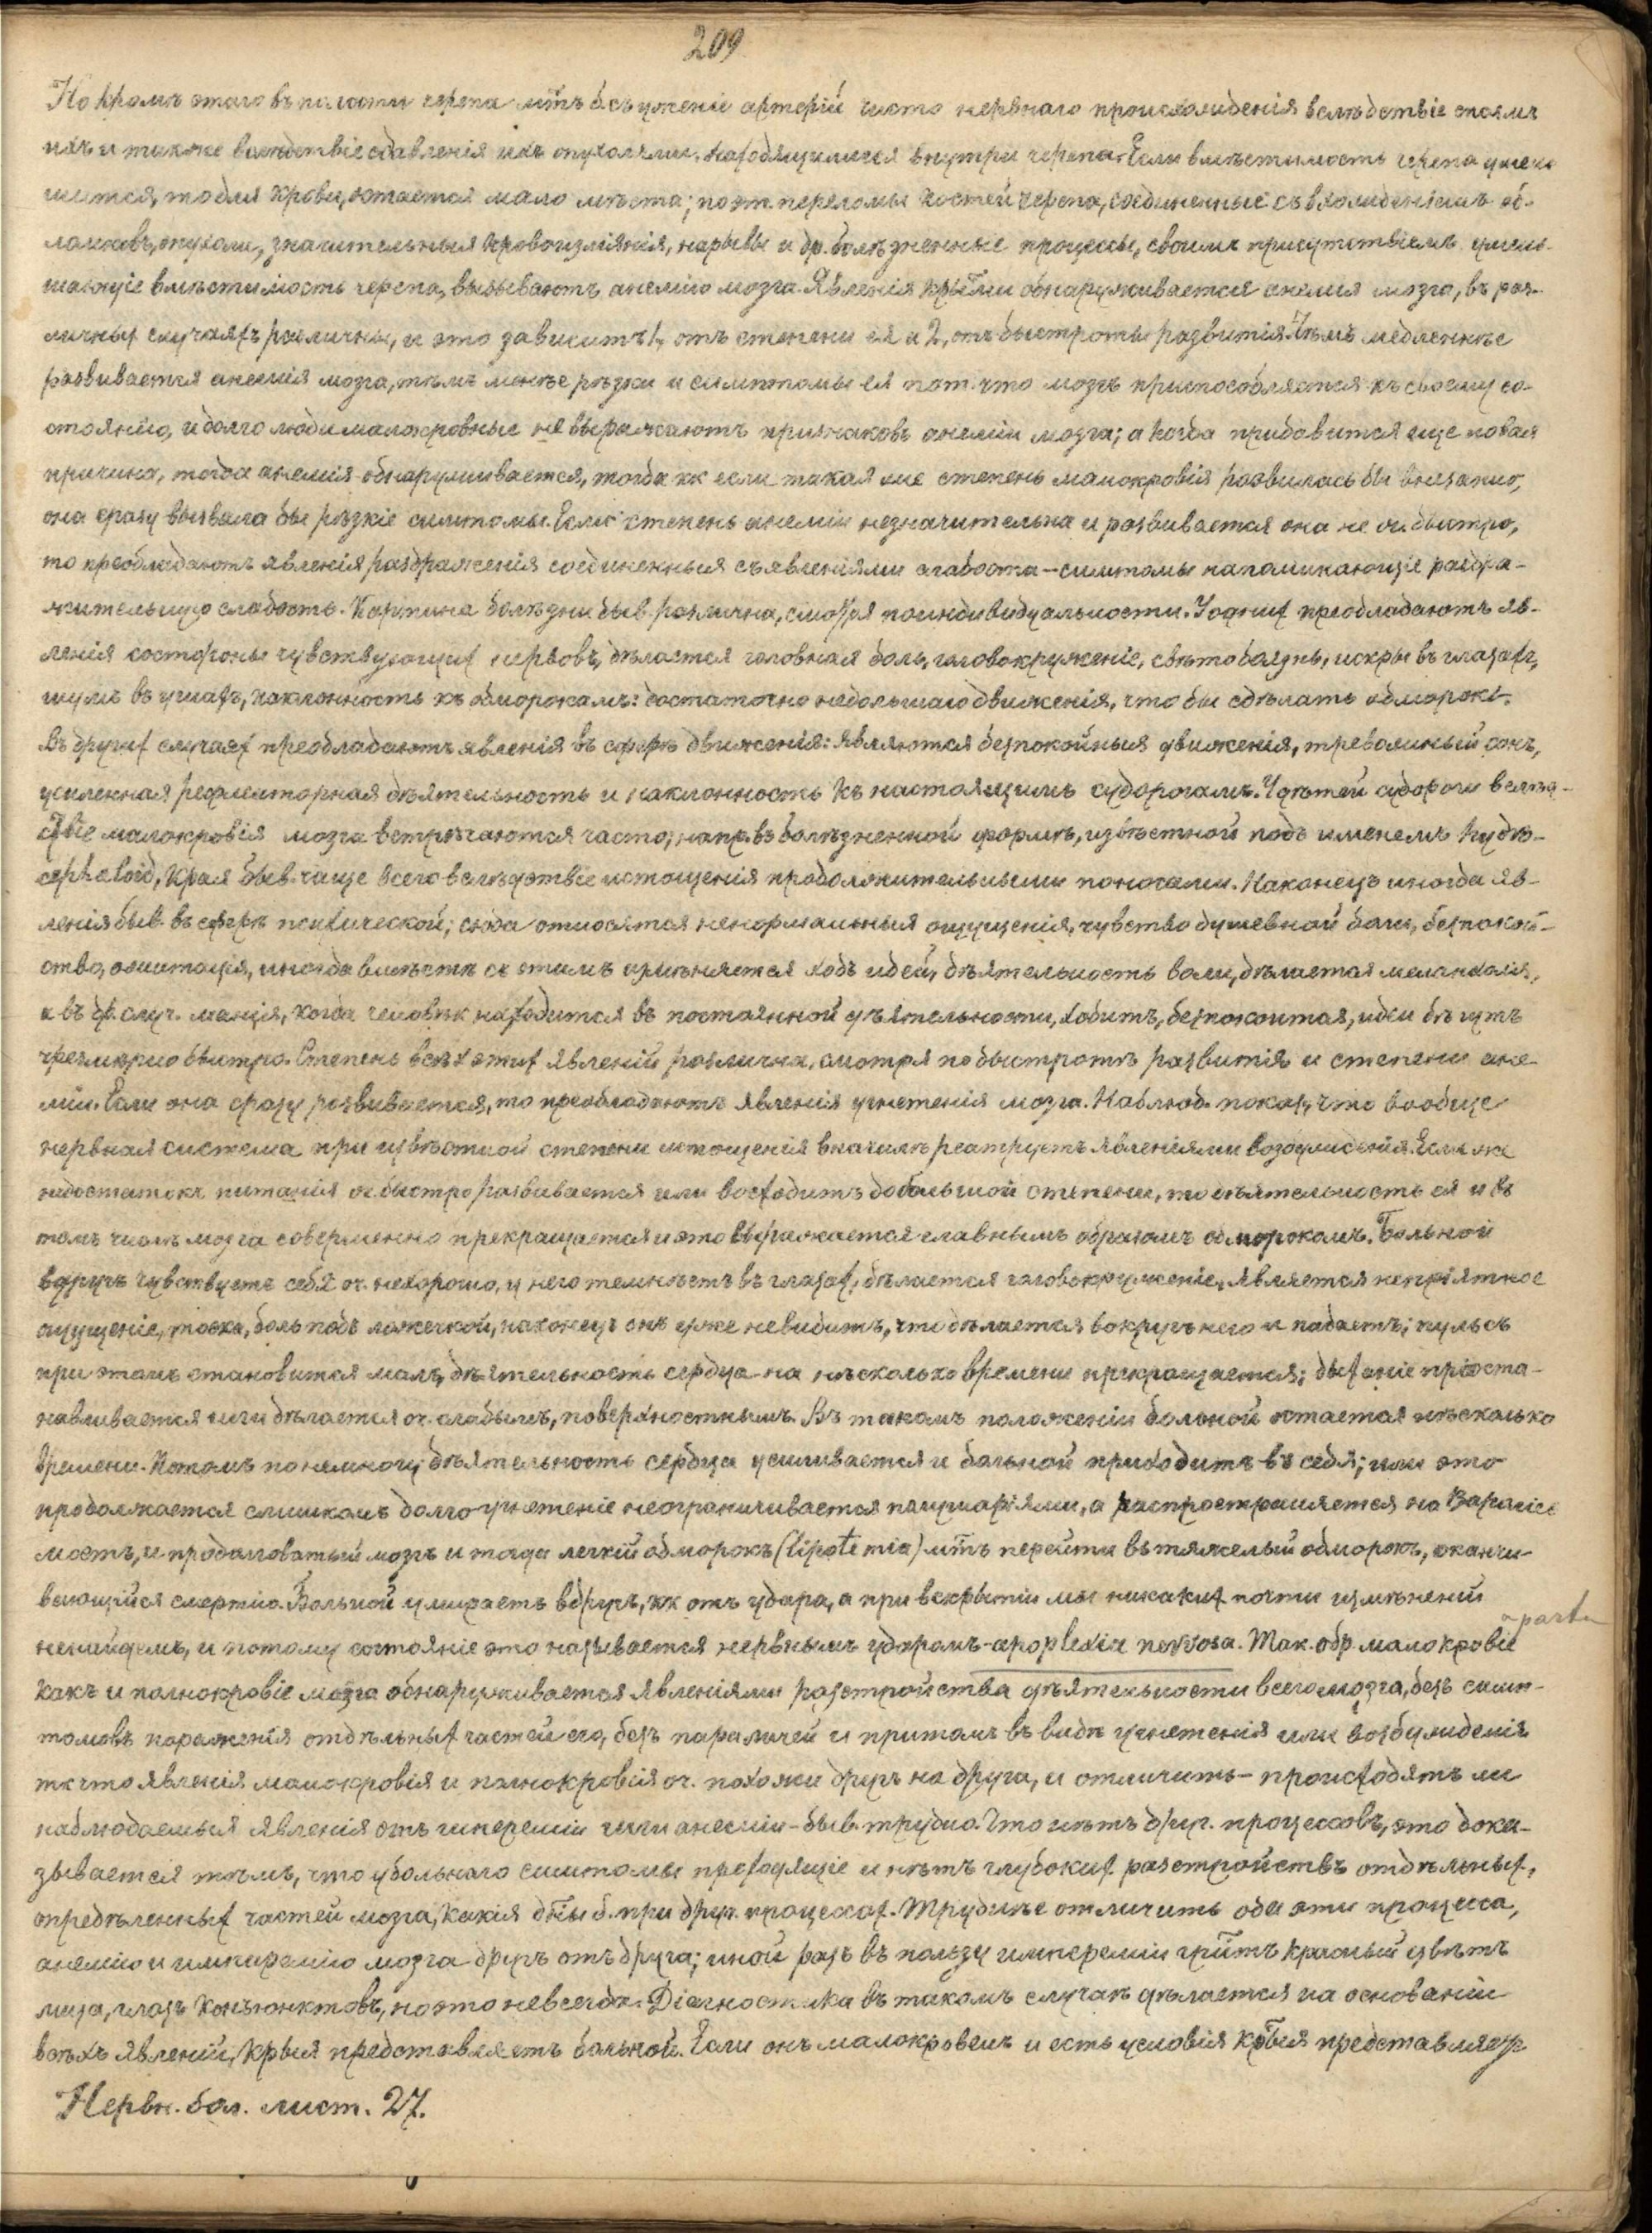 209
Но кромѣ этаго въ полости черепа м. т̃ъ б. съуженіе артерій чисто нервнаго происхожденія вслѣдствіе спазмъ
ихъ и также вслѣдствіе сдавленія ихъ опухолями, находящимися внутри черепа. Если вмѣстимость черепа умень
шится, то для крови, остается мало мѣста; поэт. переломы костей черепа, соединенные съ вхожденіемъ об-
ломковъ, опухоли, значительныя кровоизліянія, нарывы и др. болѣзненные процессы, своимъ присутствіемъ умень-
шающіе вмѣстимость черепа, вызываютъ анемію мозга. Явленія кр̃ыми обнаруживается анемія мозга, въ раз-
личныхъ случаяхъ различны, и это зависитъ 1, отъ степени ея и 2, отъ быстроты развитія. Чѣмъ медленнѣе
развивается анемія мозга, тѣмъ менѣе рѣзки и симптомы ея пот. что мозгъ приспособляется къ своему со-
стоянію, и долго люди малокровные не выражаютъ признаковъ анеміи мозга; а когда прибавится еще новая
причина, тогда анемія обнаруживается, тогда кк если такая же степень малокровія развилась бы внезапно,
она сразу вызвала бы рѣзкіе симтомы. Если степень анеміи незначительна и развивается она не оч. быстро,
то преобладаютъ явленія раздраженія соединенныя съ явленіями слабости – симтомы напоминающіе раздра-
жительную слабость. Картина болѣзни быв. различна, смотря по индивидуальности. У однихъ преобладаютъ яв-
ленія со стороны чувствующихъ нервовъ, дѣлается головная боль, головокруженіе, свѣтобоязнь, искры въ глазахъ,
шумъ въ ушахъ, наклонность къ обморокамъ: достаточно небольшаго движенія, что бы сдѣлать обморокъ.
Въ другихъ случаяхъ преобладаютъ явленія въ сферѣ движенія: являются безпокойныя движенія, тревожный сонъ,
усиленная рефлекторная дѣятельность и наклонность къ настоящимъ судорогамъ. У дѣтей судороги вслѣд-
ствіе малокровія мозга встрѣчаются часто, напр. въ болѣзненной формѣ, извѣстной подъ именемъ hydro-
cephaloid, края быв. чаще всего вслѣдствіе истощенія продолжительными поносами. Наконецъ иногда яв-
ленія быв. въ сферѣ психической; сюда относятся ненормальныя ощущенія, чувство душевной боли, безпокой-
ство, ажитація, иногда вмѣстѣ съ этимъ измѣняется ходъ идей, дѣятельность воли, дѣлается меланхолія,
а въ др. случ. манія, когда человѣк находится въ постоянной дѣятельности, ходитъ, безпокоится, идеи бѣгутъ
чрезмѣрно быстро. Степень всѣхъ этихъ явленій различна, смотря по быстротѣ развитія и степени ане-
міи. Если она сразу развивается, то преобладаютъ явленія угнетенія мозга. Наблюд. показ, что вообще
нервная система при извѣстной степени истощенія вначалѣ реагируетъ явленіями возбужденія. Если же
недостатокъ питанія оч. быстро развивается или восходитъ до большой степени, то дѣятельность ея и въ
томъ числѣ мозга совершенно прекращается и это выражается главнымъ образомъ обморокомъ. Больной
вдругъ чувствуетъ себя оч. нехорошо, у него темнѣетъ въ глазахъ, дѣлается головокруженіе, является непріятное
ощущеніе, тоска, боль подъ ложечкой, наконецъ онъ уже невидитъ, что дѣлается вокругъ него и падаетъ; пульсъ
при этомъ становится малъ, дѣятельность сердца на нѣсколько времени прекращается; дыханіе пріоста-
навливается или дѣлается оч. слабымъ, поверхностнымъ. Въ такомъ положеніи больной остается нѣсколько
времени. Потомъ понемногу дѣятельность сердца усиливается и больной приходитъ въ себя; или это
продолжается слишкомъ долго угнетеніе неограничивается полушаріями, а распространяется на Варолiев
мостъ, и продолговатый мозгъ и тогда легкій обморокъ (lipotemia) м. т̃ъ перейти въ тяжелый обморокъ, оканчи-
вающійся смертію. Больной умираетъ вдругъ, кк отъ удара, а при вскрытіи мы никакихъ почти измѣненій
ненайдемъ, и потому состояніе это называется нервнымъ ударомъ – apoplexia nervosa. Так. обр. малокровіе
какъ и полнокровіе мозга обнаруживается явленіями разстройства дѣятельности всего мозга, безъ симп-
томовъ пораженія отдѣльныхъ частей его, безъ параличей и притомъ въ видѣ угнетенія или возбужденія
тк что явленія малокровія и полнокровія оч. похожи другъ на друга, и отличить – происходятъ ли
наблюдаемыя явленія отъ гипереміи или анеміи – быв. трудно. Что нѣтъ друг. процессовъ, это дока-
зывается тѣмъ, что у больнаго симтомы преходящіе и нѣтъ глубокихъ разстройствъ отдѣльныхъ,
опредѣленныхъ частей мозга, какія д̃ны б. при друг. процессахъ. Труднѣе отличить оба эти процесса,
анемію и гиперемію мозга другъ отъ друга; иной разъ въ пользу гипереміи гр̃итъ красный цвѣтъ
лица, глазъ конъюнктовъ, но это невсегда. Діагностика въ такомъ случаѣ дѣлается на основаніи
всѣхъ явленій, крыя представляетъ больной. Если онъ малокровенъ и есть условія кр̃ыя представляер
Нервн. бол. лист. 27.